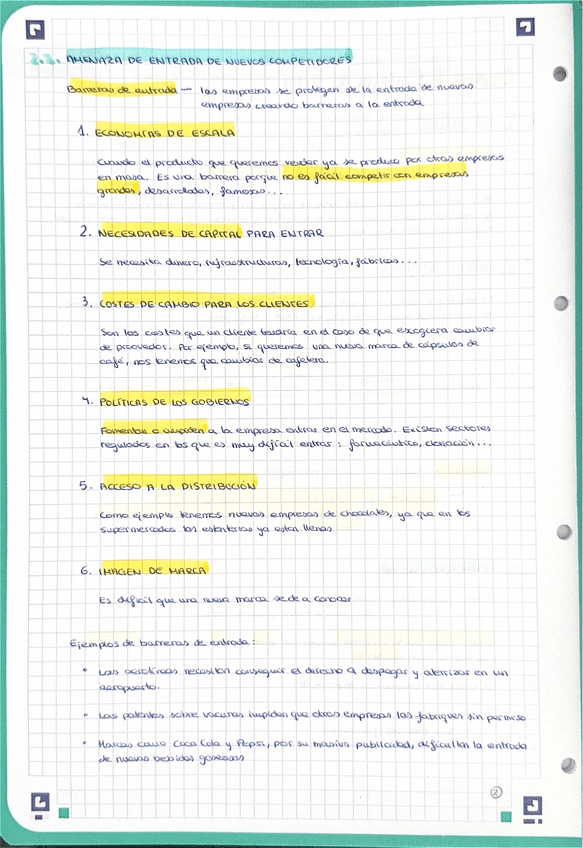 AMENAZA DE ENTRADA DE NUEVOS COMPETIDORES
Barreras de entrada — las empresas se protegen de la entrada de nuevas
empresas creando barreras a la entrada
1. ECONOMÍAS DE ESCALA
Cuando el producto que queremos vender ya se produce por otras empresas
en masa. Es una barrera porque no es fácil competir con empresas
grandes, desarrolladas, famosas...
2. NECESIDADES DE CAPITAL PARA ENTRAR
Se necesita dinero, infraestructuras, tecnología, fábricas...
3. COSTES DE CAMBIO PARA LOS CLIENTES
Son los costes que un cliente tendría en el caso de que escogiera cambiar
de proovedor. Por ejemplo, si queremos una nueva marca de cápsulas de
café, nos tenemos que cambiar de cafetera.
4. POLÍTICAS DE LOS GOBIERNOS
Fomentan o impiden a la empresa entrar en el mercado. Existen sectores
regulados en los que es muy difícil entrar: farmacéutico, clonación...
5. ACCESO A LA DISTRIBUCIÓN
Como ejemplo tenemos nuevas empresas de chocolates, ya que en los
supermercados las estanterías ya están llenas
6. IMAGEN DE MARCA
Es difícil que una nueva marca se de a conocer
Ejemplos de barreras de entrada:
• Las aerolíneas necesitan conseguir el derecho a despegar y aterrizar en un
aeropuerto.
• Las patentes sobre vacunas impiden que otras empresas las fabriquen sin permiso
• Marcas como Coca Cola y Pepsi, por su masiva publicidad, dificultan la entrada
de nuevas bebidas gaseosas
2